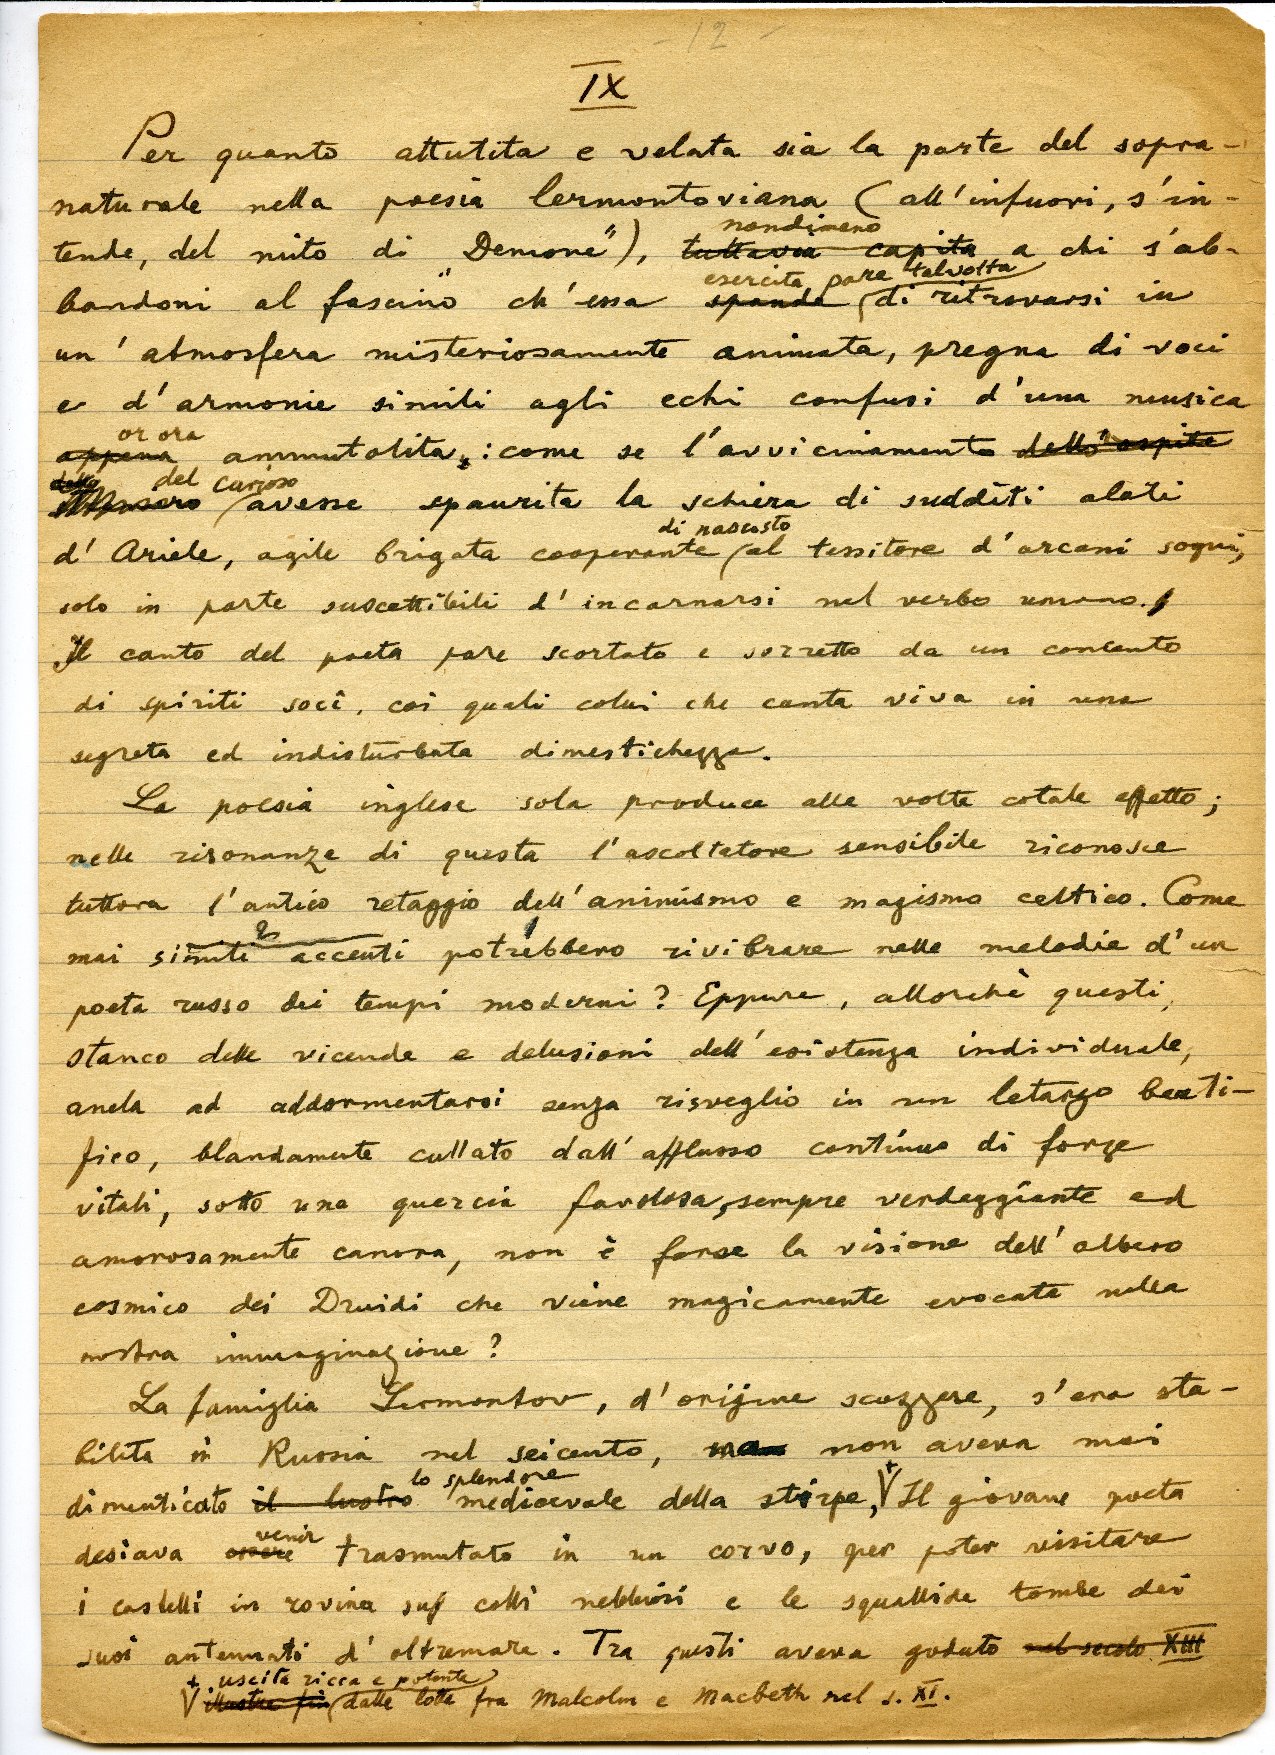 - 12 -
IX
Per quanto attutita e velata sia la parte del sopra-
naturale nella poesia lermontoviana (all'infuori, s'in-
nondimeno
tende, del mito di "Demone"), tuttavia capita a chi s'ab-
esercita, pare talvolta
bandoni al fascino ch'essa spanda di ritrovarsi in
un'atmosfera misteriosamente animata, pregna di voci
e d'armonie simili agli echi confusi d'una musica
or ora
appena ammutolita, : come se l'avvicinamento dell'ospite
del curioso
avesse spaurita la schiera di sudditi alati
di nascosto
d'Ariele, agile brigata cooperante al tessitore d'arcani sogni,
solo in parte suscettibili d'incarnarsi nel verbo umano.
Il canto del poeta pare scortato e sorretto da un concento
di spiriti soci, coi quali colui che canta viva in una
segreta ed indisturbata dimestichezza.
La poesia inglese sola produce alle volte cotale effetto;
nelle risonanze di questa l'ascoltatore sensibile riconosce
tuttora l'antico retaggio dell'animismo e magismo celtico. Come
mai simili accenti potrebbero rivibrare nelle melodie d'un
poeta russo dei tempi moderni? Eppure, allorchè questi,
stanco delle vicende e delusioni dell'esistenza individuale,
anela ad addormentarsi senza risveglio in un letargo beati-
fico, blandamente cullato dall'afflusso continuo di forze
vitali, sotto una quercia favolosa, sempre verdeggiante ed
amorosamente canora, non è forse la visione dell'albero
cosmico dei Druidi che viene magicamente evocata nella
nostra immaginazione?
La famiglia Lermontov, d'origine scozzese, s'era sta-
bilita in Russia nel seicento, ma non aveva mai
lo splendore
dimenticato il lustro medioevale della stirpe, + Il giovane poeta
venir
desiava essere trasmutato in un corvo, per poter visitare
i castelli in rovina sui colli nebbiosi e le squallide tombe dei
suoi antenati d'oltremare. Tra questi aveva goduto nel secolo XIII
+ uscita ricca e potente
illustre più dalle lotte fra Malcolm e Macbeth nel s. XI.